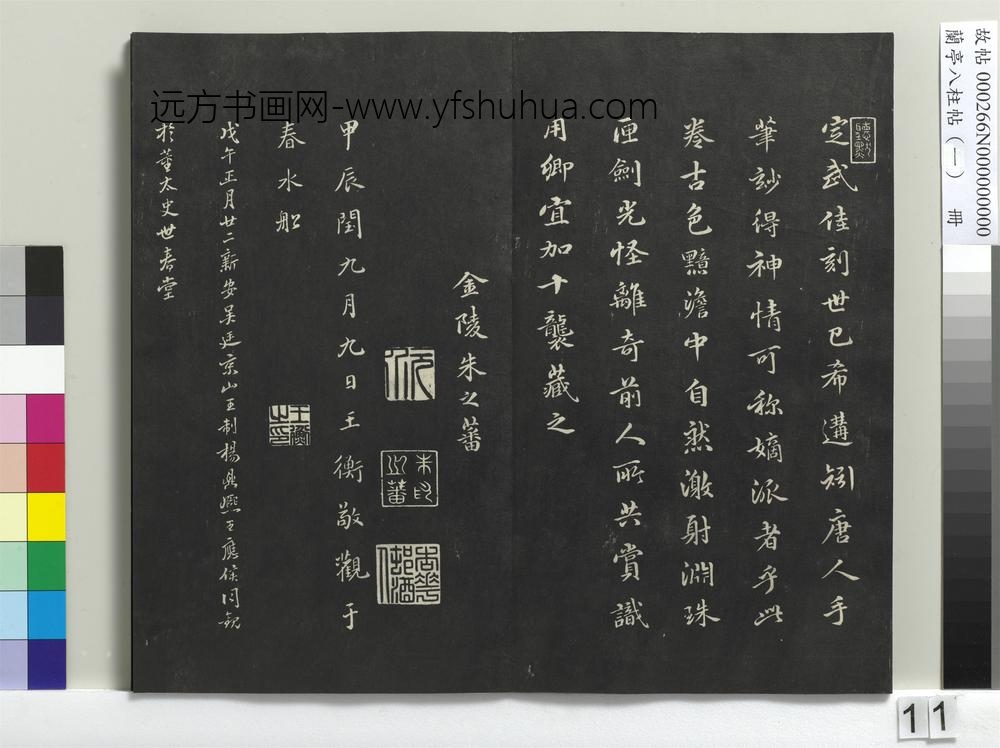 定武佳刻世已希遘矧唐人手
筆妙得神情可称嫡派者乎此
卷古色黯澹中自然激射淵珠
匣劍光怪離奇前人所共賞識
用卿宜加十襲藏之
金陵朱之蕃
朱之蕃
甲辰閏九月九日王衡敬觀于
春水船
王衡之印
戊午正月廿二新安吴廷京山王制楊鼎熙王應侯同觀
於董太史世春堂
远方书画网-www.yfshuhua.com
故帖 000266N000000000
蘭亭八柱帖(一) 冊
11